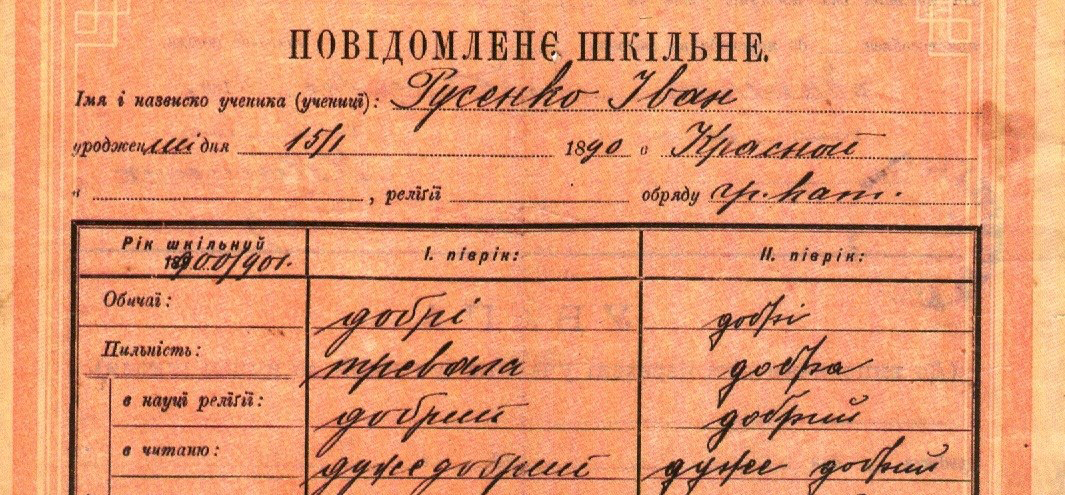 ПОВІДОМЛЕНЄ ШКІЛЬНЕ.
Імя і назвиско ученика (учениці): Русенко Іван
уроджений дня 15/1 1890 в Красной
, релїґії обряду гр. кат.
Рік шкільний 1900/901. І. піврік: ІІ. піврік:
Обичаї: добрі добрі
Пильність: тревала добра
в науцї релїґії: добрий добрий
в читаню: дуже добрий дуже добрий